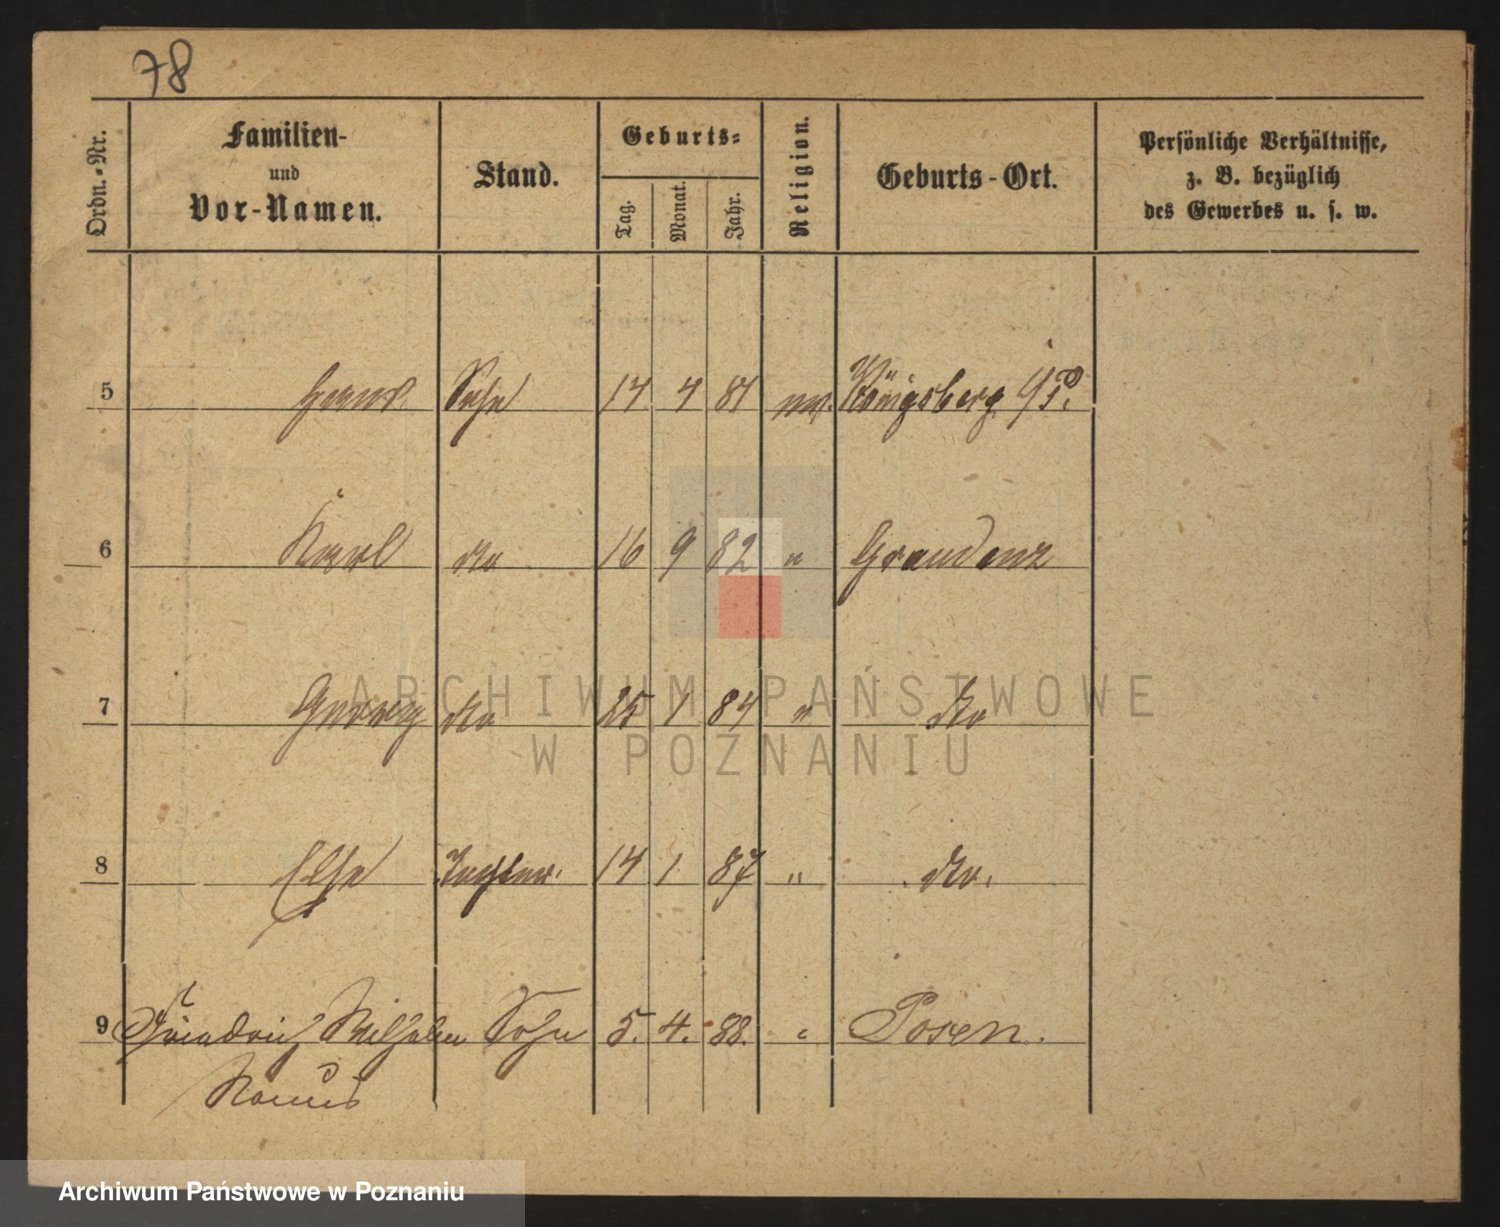 78
Ordn.-Nr.
Familien-
und
Vor-Namen.
Stand.
Geburts-
Tag.
Monat.
Jahr.
Religion.
Geburts-Ort.
Persönliche Verhältnisse,
z. B. bezüglich
des Gewerbes u. s. w.
5 Hans Sohn 14 4 81 ev. Königsberg
6 Karl do 16 9 82 " Graudenz
7 Georg do 25 1 84 " do
8 Else Tochter 14 1 87 " do.
9 Friedrich Wilhelm Sohn 5. 4. 88. " Posen.
ARCHIWUM PAŃSTWOWE
W POZNANIU
Archiwum Państwowe w Poznaniu